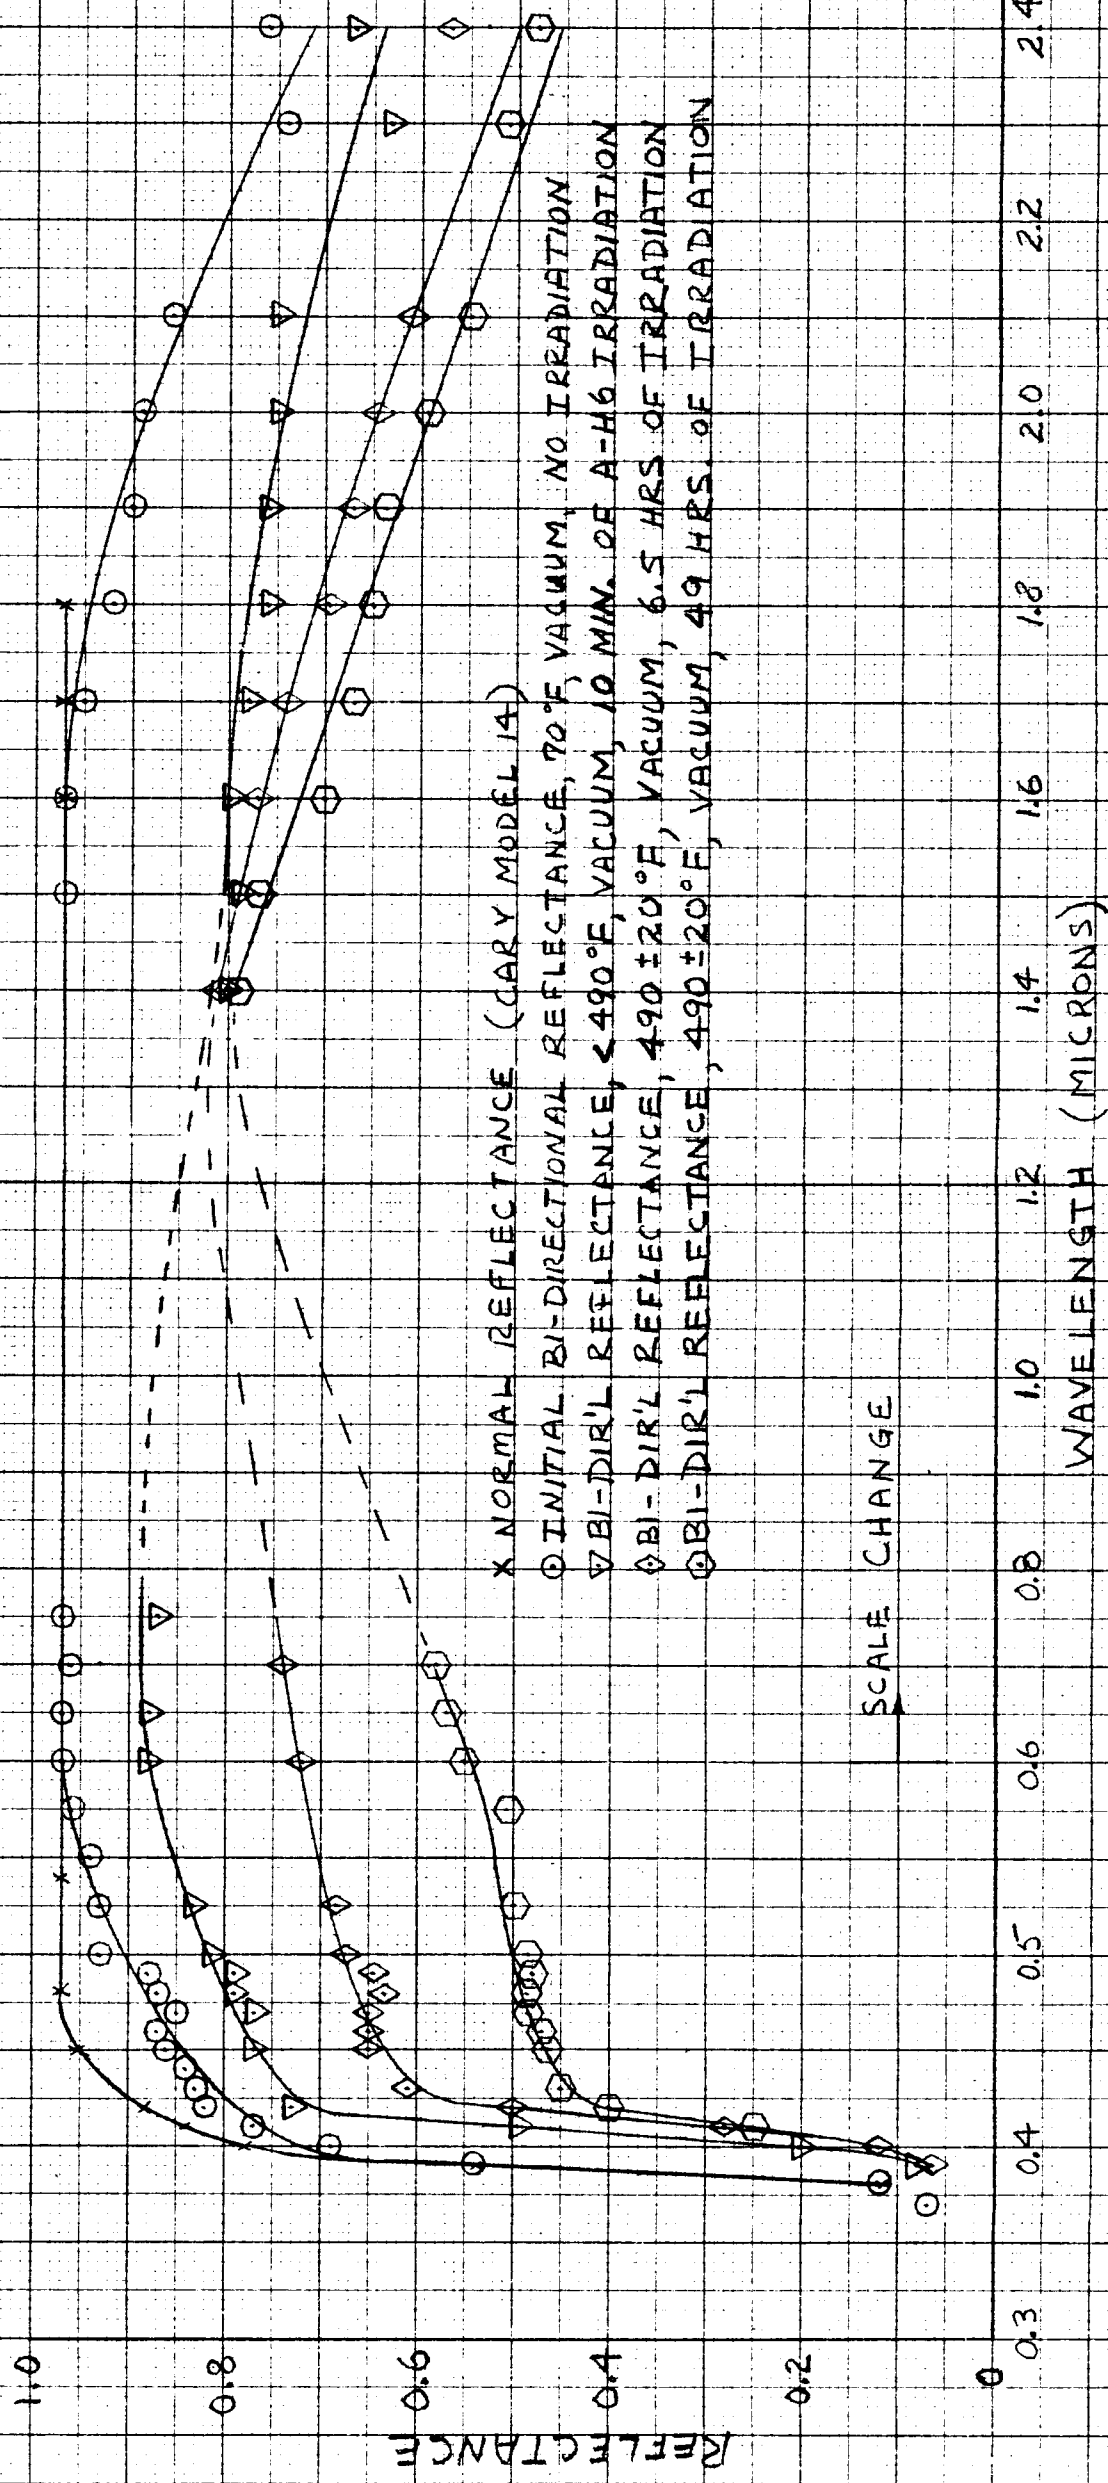 REFLECTANCE
1.0
0.8
0.6
0.4
0.2
0
X NORMAL REFLECTANCE (CARY MODEL 14)
INITIAL BI-DIRECTIONAL REFLECTANCE, 70°F, VACUUM, NO IRRADIATION
BI-DIR'L REFLECTANCE, <490°F, VACUUM, 10 MIN. OF A-H6 IRRADIATION
BI-DIR'L REFLECTANCE, 490±20°F, VACUUM, 6.5 HRS OF IRRADIATION
BI-DIR'L REFLECTANCE, 490±20°F, VACUUM, 49 HRS. OF IRRADIATION
SCALE CHANGE
0.3 0.4 0.5 0.6 0.8 1.0 1.2 1.4 1.6 1.8 2.0 2.2 2.4
WAVELENGTH (MICRONS)